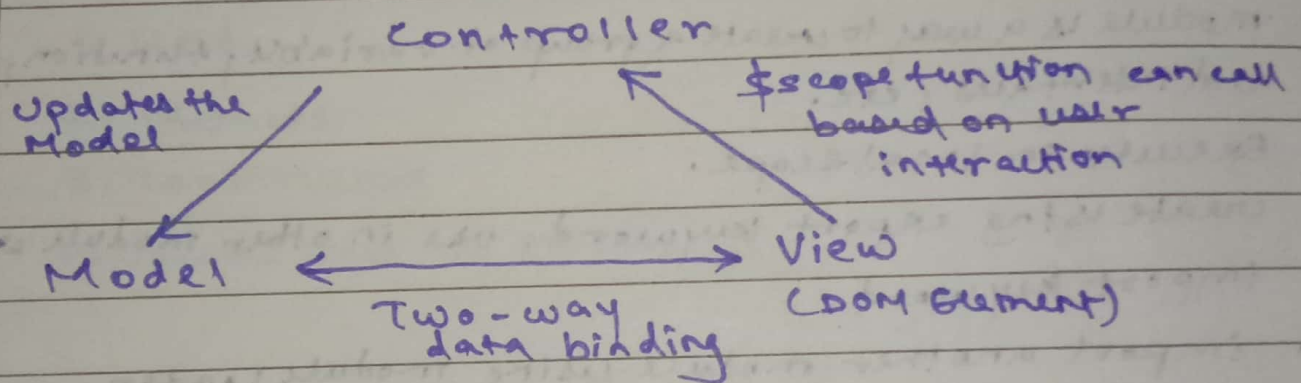 Controller
Updates the
Model
$scope function can call
based on user
interaction
Model
View
(DOM Element)
Two-way
data binding